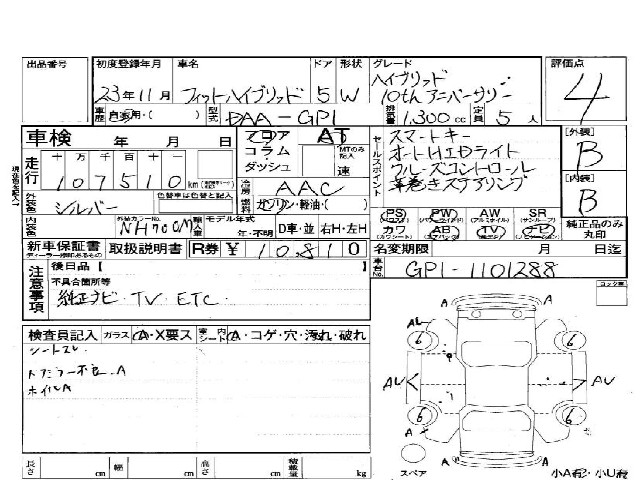 出品番号 初度登録年月 車名 ドア 形状 グレード 評価点
23年11月 フィットハイブリッド 5 W ハイブリッド 10th アニバーサリー 4
車歴 自家用・( ) 型式 DAA-GP1 排気量 1,300 cc 定員 5 人
車検 年 月 日 フロア AT セールスポイント スマートキー [外装]
コラム MTのみ記入 オートHIDライト B
走行 十 万 千 百 十 一 ダッシュ 速 クルーズコントロール
107510 km 冷房 AAC 革巻きステアリング [内装]
外装色 シルバー 色替車は色替と記入 燃料 ガソリン・軽油・( ) B
内装色 外装カラーNo. NH700M 輸入車 モデル年式 PS PW AW SR 純正品のみ丸印
年・不明 D車・並 右H・左H カワ AB TV ナビ
新車保証書 取扱説明書 R券 ¥ 10,810 名変期限 月 日迄
注意事項 後日品 [ ] 車台No. GP1-1101288
不具合箇所等 ロック車
純正ナビ・TV・ETC.
検査員記入 ガラス A・X要ス 室内シート A・コゲ・穴・汚れ・破れ
シートスレ
ドアミラー不良.A
ホイルA
A
AU
6 6
AU AU
6 6
A A
A
長さ cm 幅 cm 高さ cm 積載量 kg スペア 小A有・小U有
現在色を記入